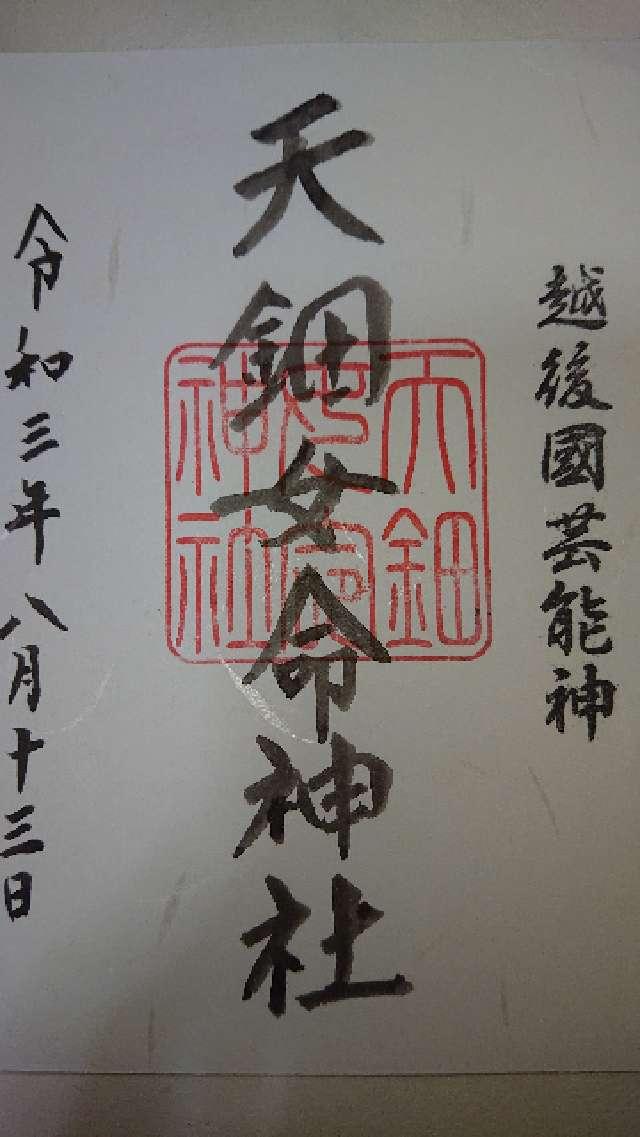 越後國芸能神
天鈿女命神社
令和三年八月十三日
天鈿
女命
神社